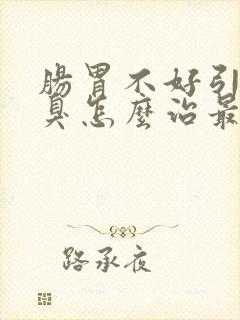 腸胃不好引
臭怎麼治最
路承夜